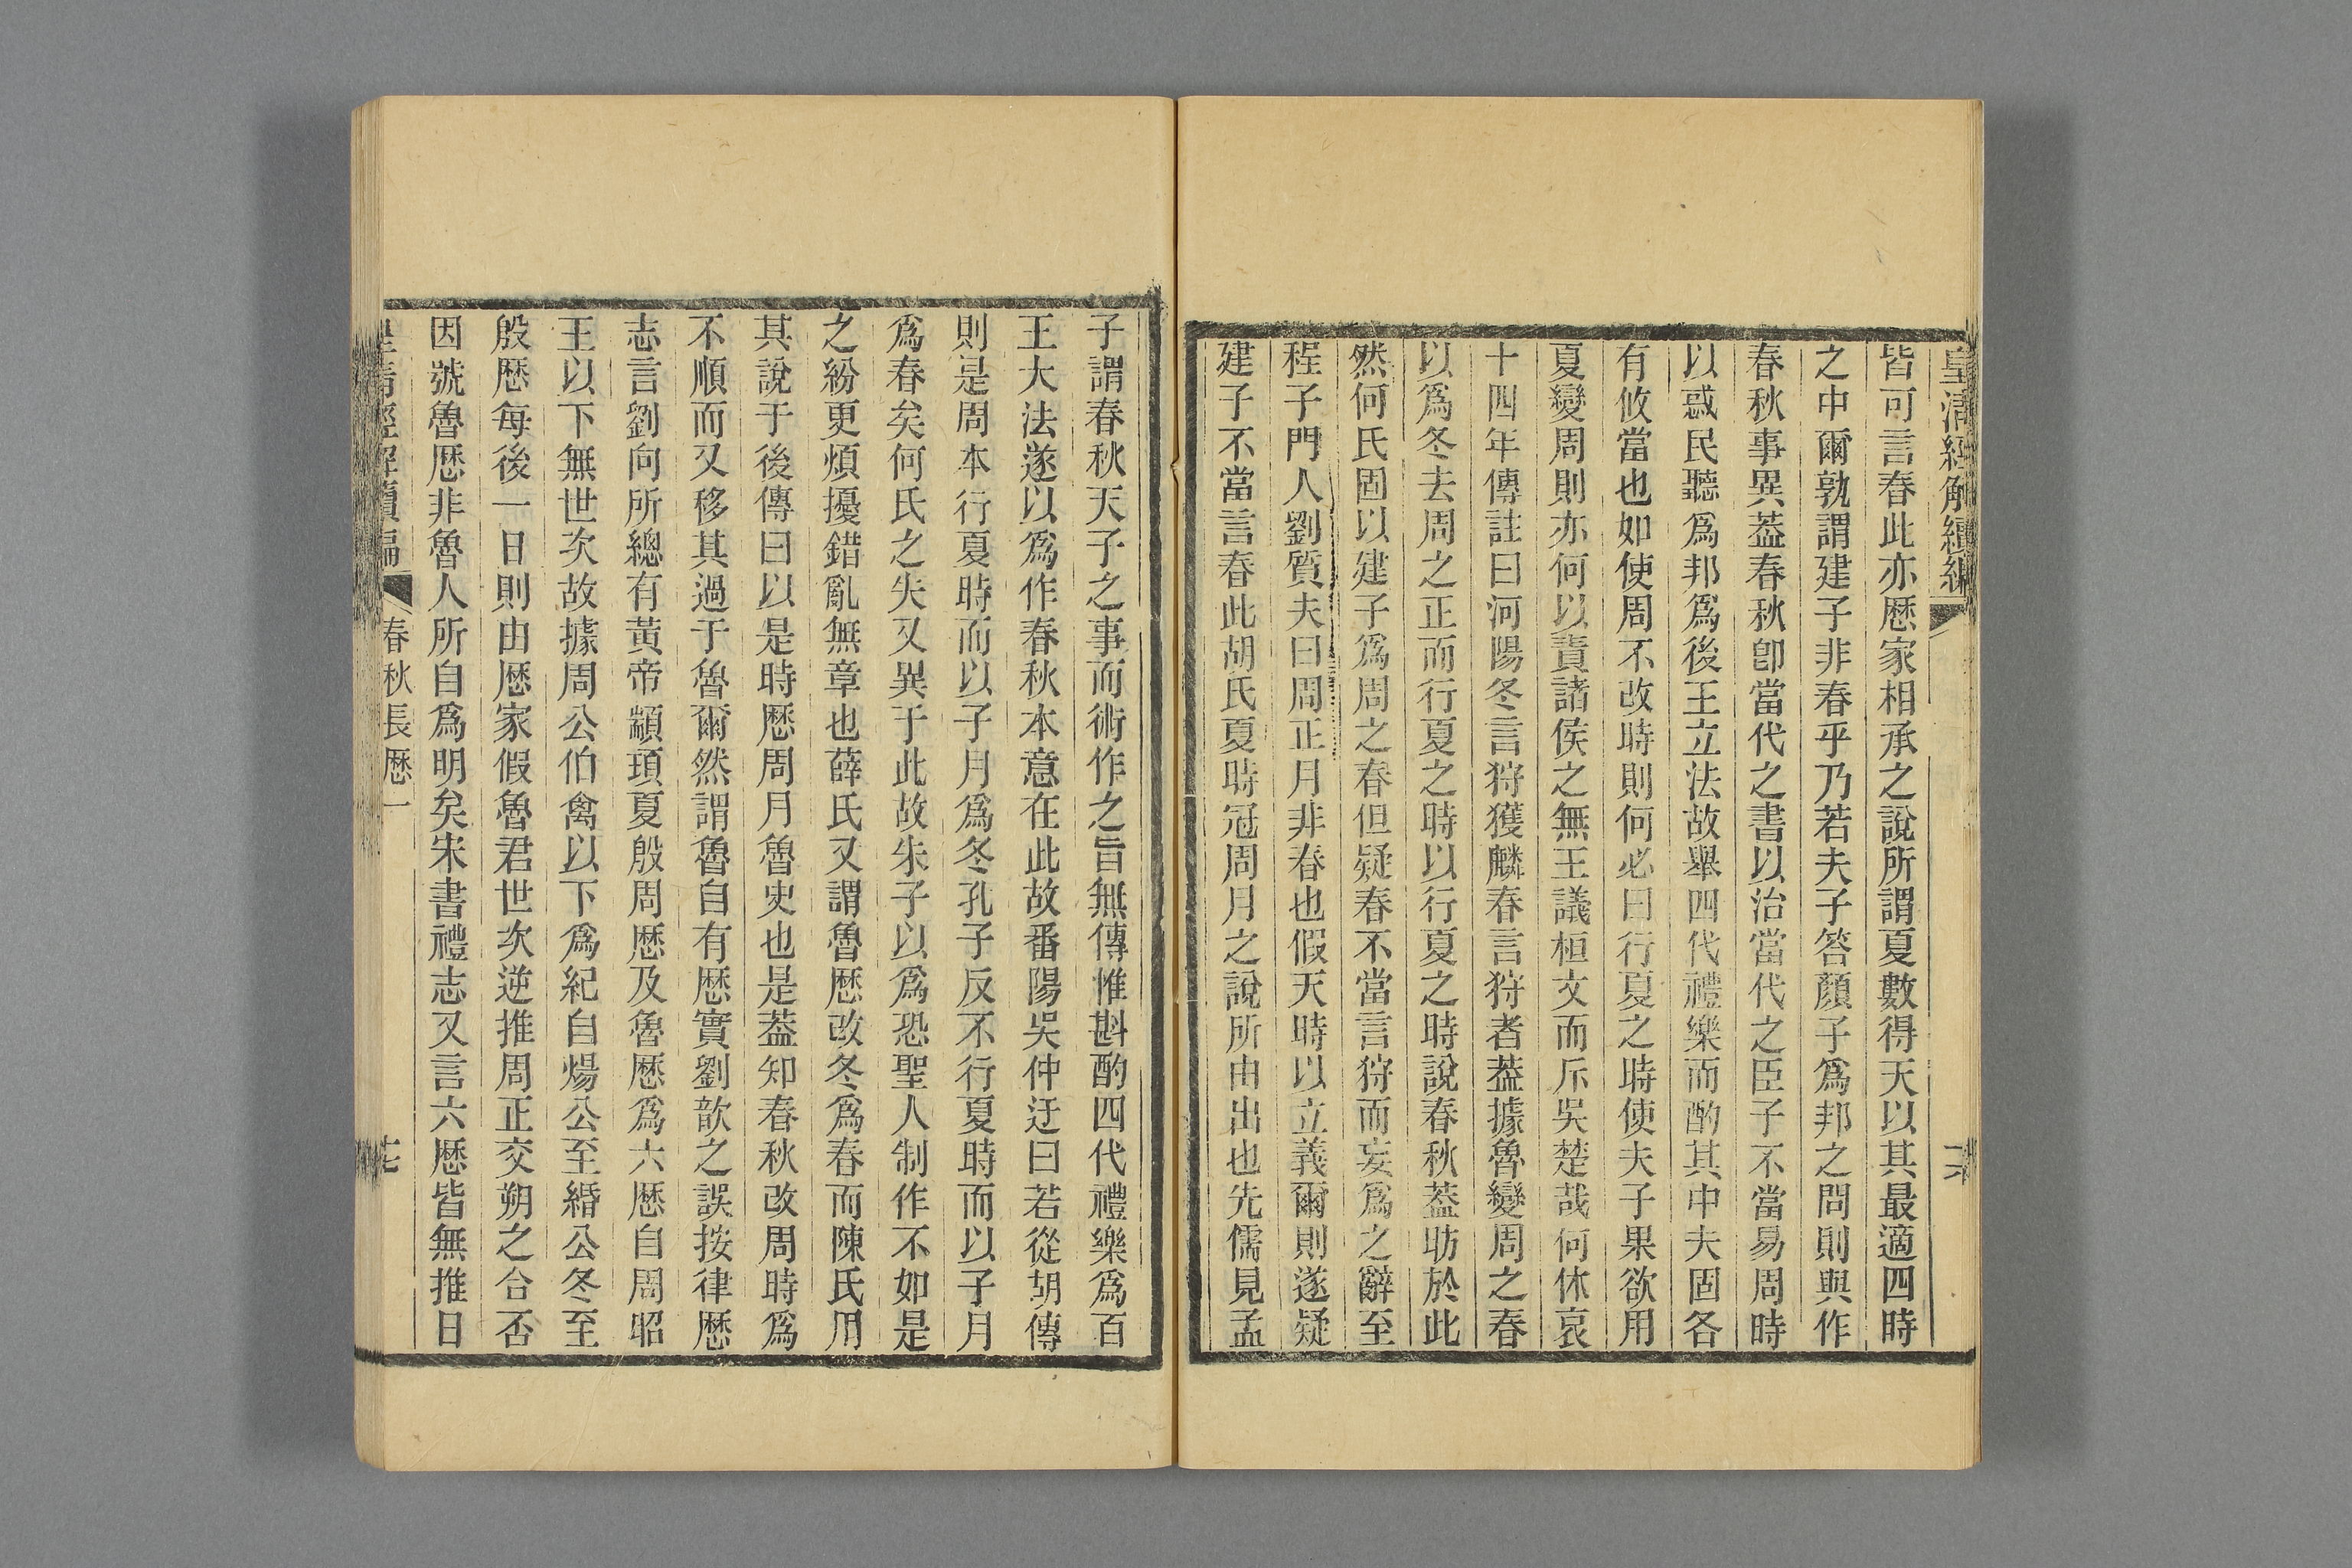 皇清經解續編
皆可言春此亦厯家相承之說所謂夏數得天以其最適四時
之中爾孰謂建子非春乎乃若夫子答顏子爲邦之問則與作
春秋事異葢春秋卽當代之書以治當代之臣子不當易周時
以惑民聽爲邦爲後王立法故舉四代禮樂而酌其中夫固各
有攸當也如使周不改時則何必曰行夏之時使夫子果欲用
夏變周則亦何以責諸侯之無王議桓文而斥吳楚哉何休哀
十四年傳註曰河陽冬言狩獲麟春言狩者葢據魯變周之春
以爲冬去周之正而行夏之時以行夏之時說春秋葢昉於此
然何氏固以建子爲周之春但疑春不當言狩而妄爲之辭至
程子門人劉質夫曰周正月非春也假天時以立義爾則遂疑
建子不當言春此胡氏夏時冠周月之說所由出也先儒見孟
子謂春秋天子之事而術作之旨無傳惟斟酌四代禮樂爲百
王大法遂以爲作春秋本意在此故番陽吳仲迂曰若從胡傳
則是周本行夏時而以子月爲冬孔子反不行夏時而以子月
爲春矣何氏之失又異于此故朱子以爲恐聖人制作不如是
之紛更煩擾錯亂無章也薛氏又謂魯厯改冬爲春而陳氏用
其說于後傳曰以是時厯周月魯史也是葢知春秋改周時爲
不順而又移其過于魯爾然謂魯自有厯實劉歆之誤按律厯
志言劉向所總有黃帝顓頊夏殷周厯及魯厯爲六厯自周昭
王以下無世次故據周公伯禽以下爲紀自煬公至緡公冬至
殷厯每後一日則由厯家假魯君世次逆推周正交朔之合否
因號魯厯非魯人所自爲明矣宋書禮志又言六厯皆無推日
皇清經解續編 春秋長厯一 十七